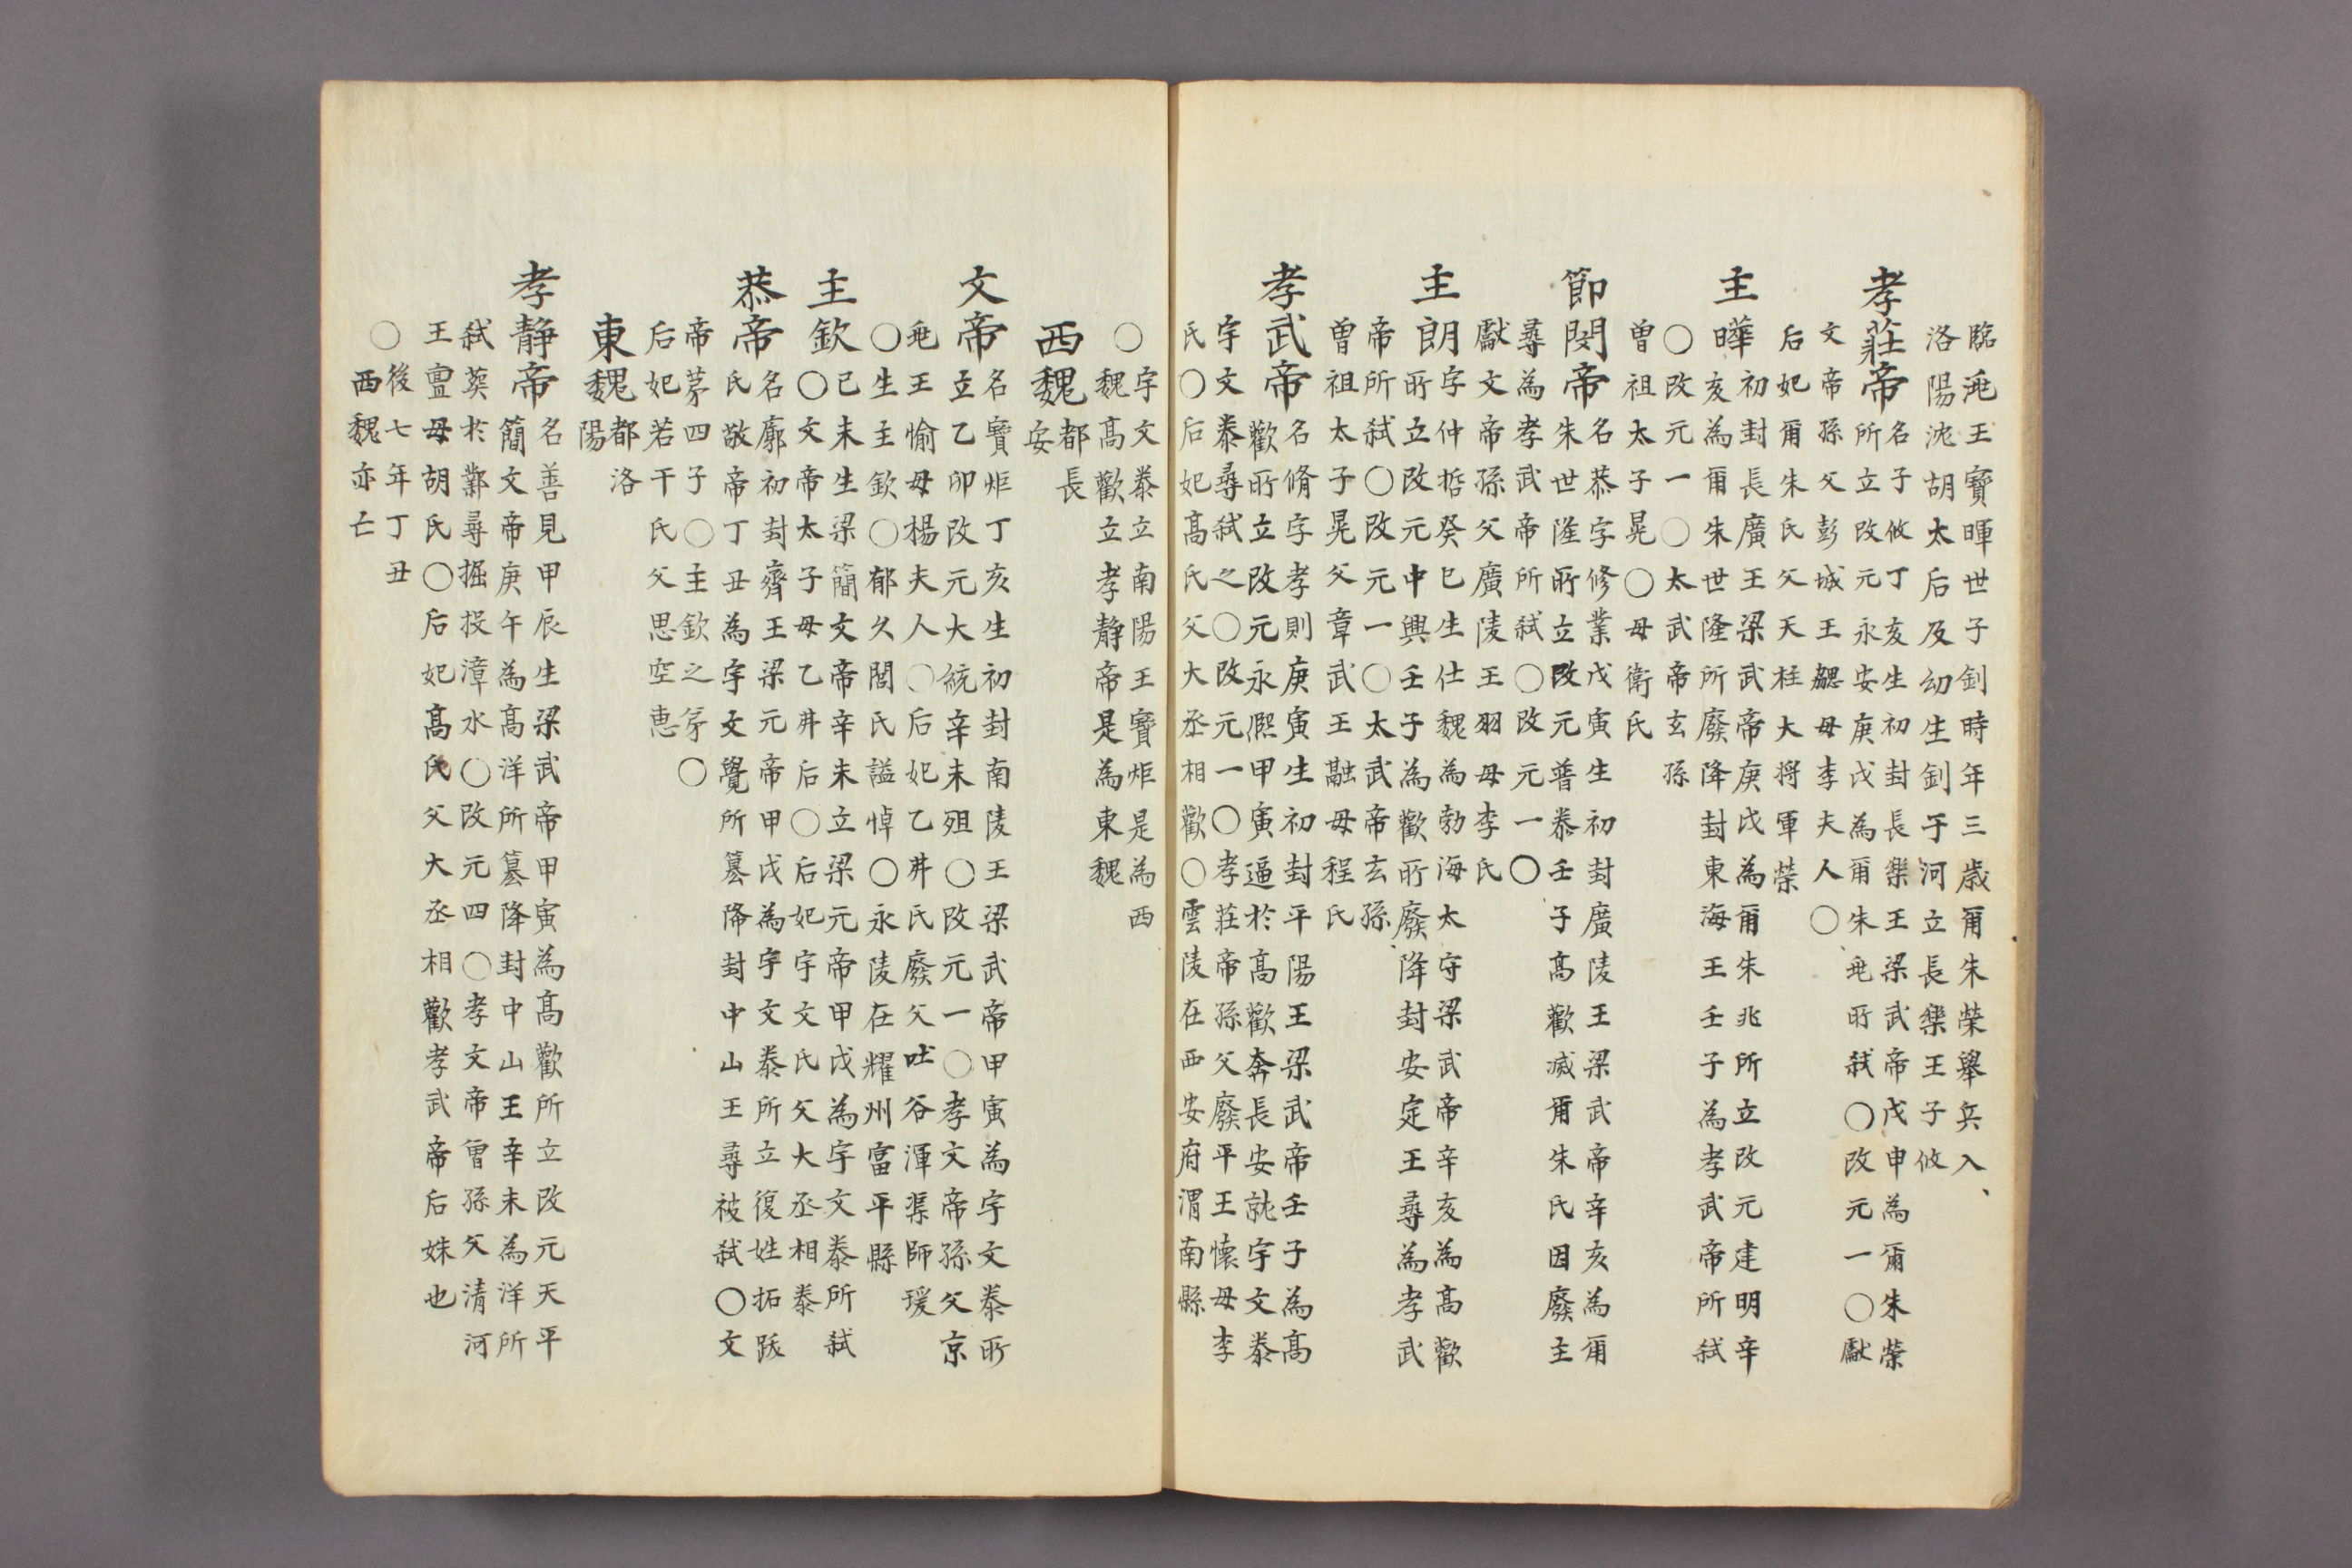 臨洮王寶暉世子釗時年三歲爾朱榮舉兵入
洛陽沈胡太后及幼生釗于河立長樂王子攸
孝莊帝
名子攸丁亥生初封長樂王梁武帝戊申為爾朱榮
所立改元永安庚戌為爾朱兆所弒〇改元一〇獻
文帝孫父彭城王勰母李夫人〇
后妃爾朱氏父天柱大將軍榮
主曄
初封長廣王梁武帝庚戌為爾朱兆所立改元建明辛
亥為爾朱世隆所廢降封東海王壬子為孝武帝所弒
〇改元一〇太武帝玄孫
曾祖太子晃〇母衛氏
節閔帝
名恭字修業戊寅生初封廣陵王梁武帝辛亥為爾
朱世隆所立改元普泰壬子高歡滅爾朱氏因廢主
尋為孝武帝所弒〇改元一〇
獻文帝孫父廣陵王羽母李氏
主朗
字仲哲癸巳生仕魏為勃海太守梁武帝辛亥為高歡
所立改元中興壬子為歡所廢降封安定王尋為孝武
帝所弒〇改元一〇太武帝玄孫
曾祖太子晃父章武王融母程氏
孝武帝
名脩字孝則庚寅生初封平陽王梁武帝壬子為高
歡所立改元永熙甲寅逼於高歡奔長安就宇文泰
宇文泰尋弒之〇改元一〇孝莊帝孫父廢平王懷母李
氏〇后妃高氏父大丞相歡〇雲陵在西安府渭南縣
〇宇文泰立南陽王寶炬是為西
魏高歡立孝靜帝是為東魏
西魏
都長
安
文帝
名寶炬丁亥生初封南陵王梁武帝甲寅為宇文泰所
立乙卯改元大統辛未殂〇改元一〇孝文帝孫父京
兆王愉母楊夫人〇后妃乙弗氏廢父吐谷渾渠師瑗
〇生主欽〇郁久閭氏謚悼〇永陵在耀州富平縣
主欽
已未生梁簡文帝辛未立梁元帝甲戌為宇文泰所弒
〇文帝太子母乙弗后〇后妃宇文氏父大丞相泰
恭帝
名廓初封齊王梁元帝甲戌為宇文泰所立復姓拓跋
氏敬帝丁丑為宇文覺所篡降封中山王尋被弒〇文
帝苐四子〇主欽之弟〇
后妃若干氏父思空惠
東魏
都洛
陽
孝靜帝
名善見甲辰生梁武帝甲寅為高歡所立改元天平
簡文帝庚午為高洋所篡降封中山王辛未為洋所
弒葵於鄴尋掘投漳水〇改元四〇孝文帝曾孫父清河
王亶母胡氏〇后妃高氏父大丞相歡孝武帝后妹也
〇後七年丁丑
西魏亦亡